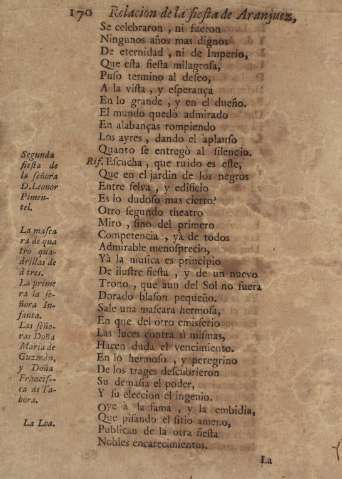 170 Relacion de la fiesta de Aranjuez,
Se celebraron, ni fueron
Ningunos años mas dignos
De eternidad, ni de Imperio,
Que esta fiesta milagrosa,
Puso termino al deseo,
A la vista, y esperança
En lo grande, y en el dueño.
El mundo quedò admirado
En alabanças rompiendo
Los ayres, dando el aplauso
Quanto se entregò al silencio.
Segunda
fiesta de
la señora
D. Leonor
Pimen-
tel.
Rif. Escucha, que ruido es este,
Que en el jardin de los negros
Entre selva, y edificio
Es lo dudoso mas cierto?
Otro segundo theatro
Miro, sino del primero
La masca
ra de qua
tro qua-
drillas de
à tres.
Competencia, yà de todos
Admirable menosprecio,
Yà la musica es principio
De ilustre fiesta, y de un nuevo
La prime
ra la se-
ñora In-
fanta.
Trono, que aun del Sol no fuera
Dorado blason pequeño.
Sale una mascara hermosa,
En que del otro emisferio
Las seño-
ras Doña
Maria de
Guzmán,
y Doña
Francis-
ca de Ta-
bora.
Las luces contra si mismas,
Hacen duda el vencimiento.
En lo hermoso, y peregrino
De los trages descubrieron
Su demasia el poder,
Y su eleccion el ingenio.
La Loa.
Oye à la fama, y la embidia,
Que pisando el sitio ameno,
Publican de la otra fiesta
Nobles encarecimientos.
La